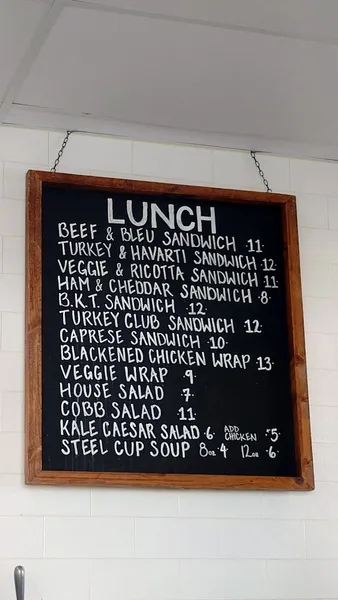 LUNCH
BEEF & BLEU SANDWICH ·11·
TURKEY & HAVARTI SANDWICH ·12·
VEGGIE & RICOTTA SANDWICH ·11·
HAM & CHEDDAR SANDWICH ·8·
B.K.T. SANDWICH ·12·
TURKEY CLUB SANDWICH ·12·
CAPRESE SANDWICH ·10·
BLACKENED CHICKEN WRAP ·13·
VEGGIE WRAP ·9·
HOUSE SALAD ·7·
COBB SALAD ·11·
KALE CAESAR SALAD ·6· ADD CHICKEN ·5·
STEEL CUP SOUP 8oz ·4 12oz ·6·